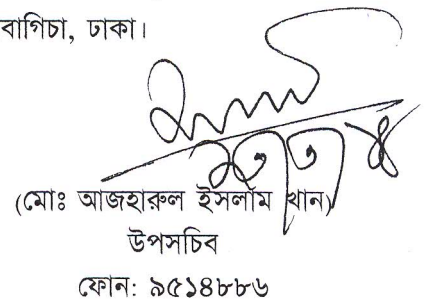 বাগিচা, ঢাকা।
(মোঃ আজহারুল ইসলাম খান)
উপসচিব
ফোন: ৯৫১৪৮৮৬